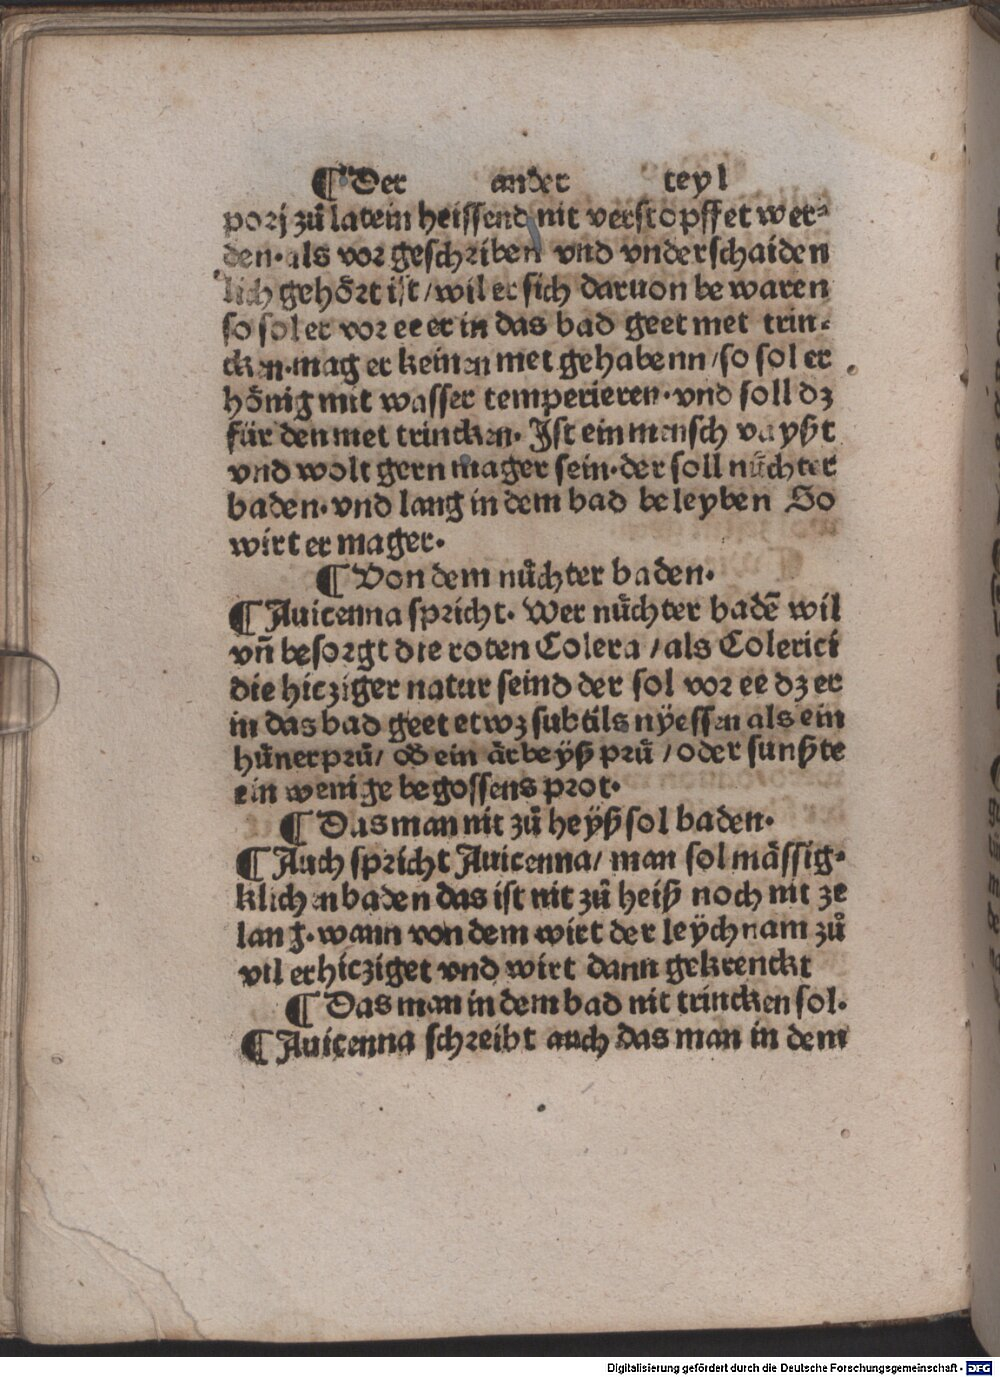 ¶ Der ander teyl
porj zů latein heissend nit verstopffet wer⸗
den· als vor geschriben vnd vnderschaiden
lich gehört ist / wil er sich daruon bewaren
so sol er vor ee er in das bad geet met trin⸗
cken· mag er keinen met gehabenn / so sol er
hönig mit wasser temperieren· vnd soll dz
für den met trincken· Ist ein mensch vayßt
vnd wolt gern mager sein· der soll nůchter
baden· vnd lang in dem bad beleyben So
wirt er mager·
¶ Von dem nůchter baden·
¶ Auicenna spricht· Wer nůchter badē wil
vn̄ besorgt die roten Colera / als Colerici
die hicziger natur seind der sol vor ee dz er
in das bad geet etwz subtils nÿessen als ein
hůnerprů / od ein ärbeÿß prů / oder sunßte
ein wenige begossens prot·
¶ Das man nit zů heÿß sol baden·
¶ Auch spricht Auicenna / man sol mässig⸗
klichen baden das ist nit zů heiß noch nit ze
lang· wann von dem wirt der leÿchnam zů
vil erhicziget vnd wirt dann gekrenckt
¶ Das man in dem bad nit trincken sol·
¶ Auicenna schreibt auch das man in dem
Digitalisierung gefördert durch die Deutsche Forschungsgemeinschaft - DFG